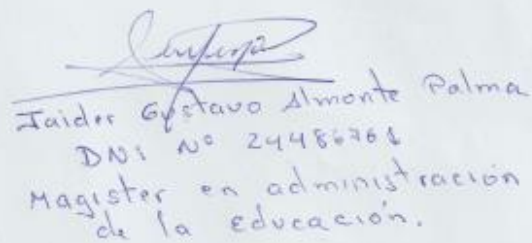 Jaider Gustavo Almonte Palma
DNI Nº 24486761
Magister en administración
de la Educación.